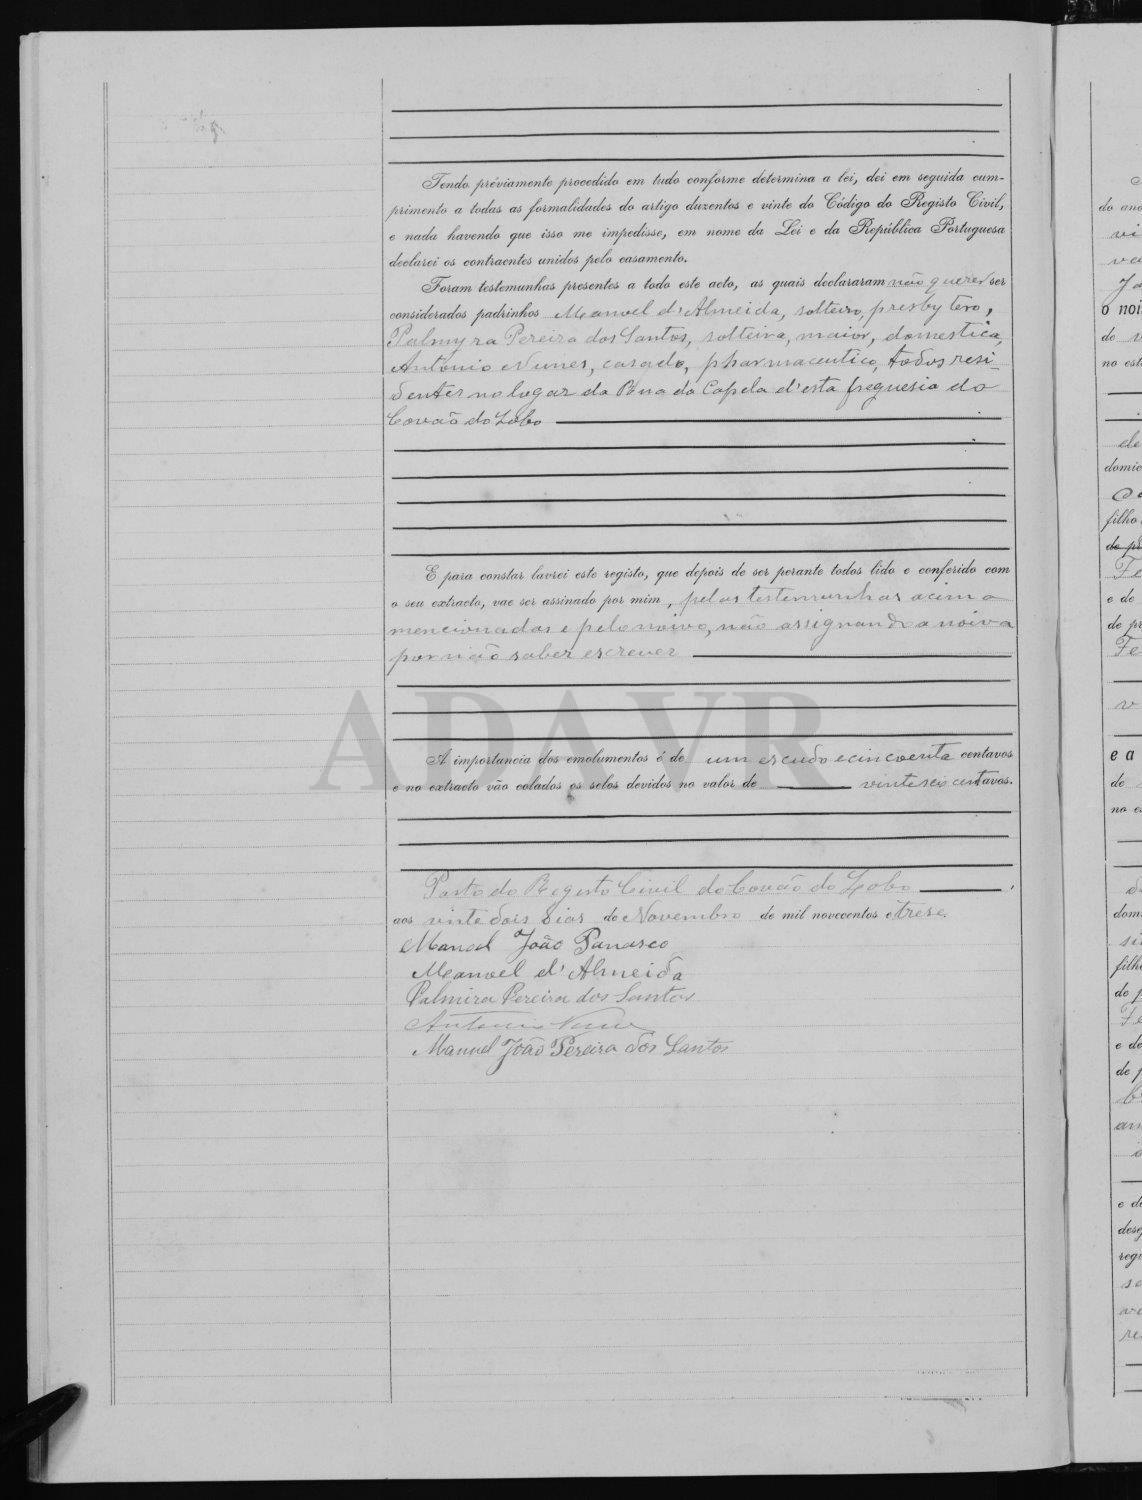 Tendo préviamente procedido em tudo conforme determina a lei, dei em seguida cum-
primento a todas as formalidades do artigo duzentos e vinte do Código do Registo Civil,
e nada havendo que isso me impedisse, em nome da Lei e da República Portuguesa
declarei os contraentes unidos pelo casamento.
Foram testemunhas presentes a todo este acto, as quais declararam não querer ser
considerados padrinhos Manuel d'Almeida, solteiro, presbytero,
Palmyra Pereira dos Santos, solteira, maior, domestica,
Antonio Nunes, casado, pharmaceutico, todos resi-
dentes no lugar da Rua da Capela d'esta freguesia do
Covão do Lobo
E para constar lavrei este registo, que depois de ser perante todos lido e conferido com
o seu extracto, vae ser assinado por mim, pelas testemunhas acima
mencionadas e pelo noivo, não assignando a noiva
por não saber escrever
ADAVR
A importancia dos emolumentos é de um escudo e cincoenta centavos
e no extracto vão colados os selos devidos no valor de vinte seis centavos.
Posto do Registo Civil do Covão do Lobo
aos vinte dois dias de Novembro de mil novecentos e trese.
Manoel João Panasco
Manuel d'Almeida
Palmira Pereira dos Santos
Antonio Nunes
Manuel João Pereira dos Santos
do ano
vi
va
o noi
de
no est
ele
domic
filho
do pr
Fe
e de
de pr
Fe
v
e a
de
no es
dom
filh
de p
Fe
e de
de p
e de
desg
regi
se
re